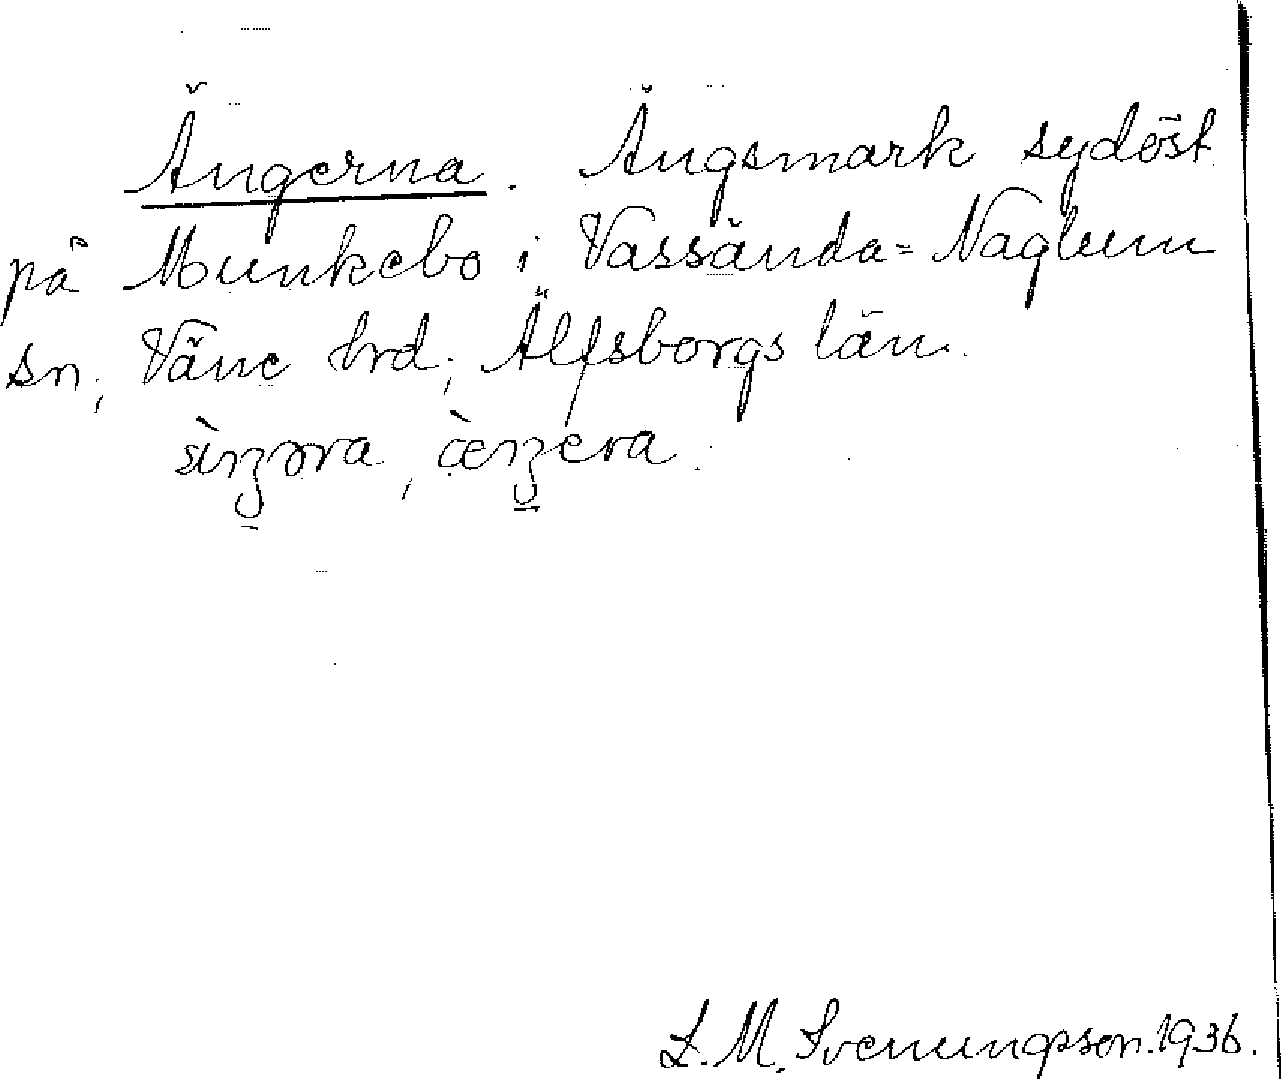 Ängerna. Ängsmark sydöst
på Munkebo i Vassända-Naglum
sn, Väne hrd, Älfsborgs län.
L. M. Svenungsson. 1936.